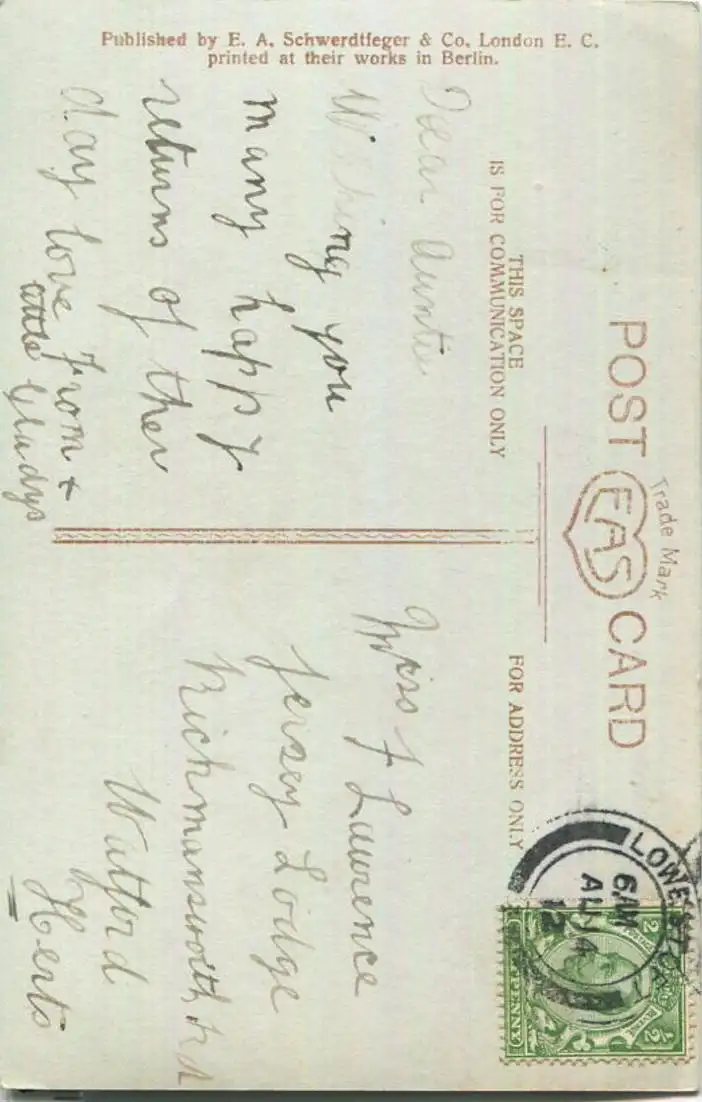 Published by E. A. Schwerdtfeger & Co. London E. C.
printed at their works in Berlin.
POST CARD
Trade Mark
EAS
THIS SPACE
IS FOR COMMUNICATION ONLY
FOR ADDRESS ONLY
Dear Auntie
Wishing you
many happy
returns of ther
day love from +
little Gladys
Miss F Lawrence
Jersey Lodge
Richmansworth Rd
Watford
Herts
6 AM
AU 14
12